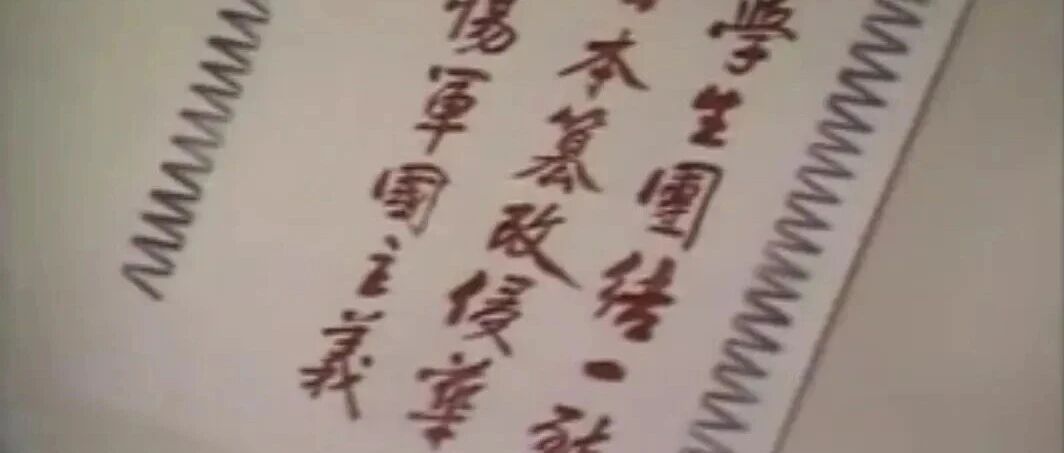 學生團結一致
本篡改侵華
揚軍國主義